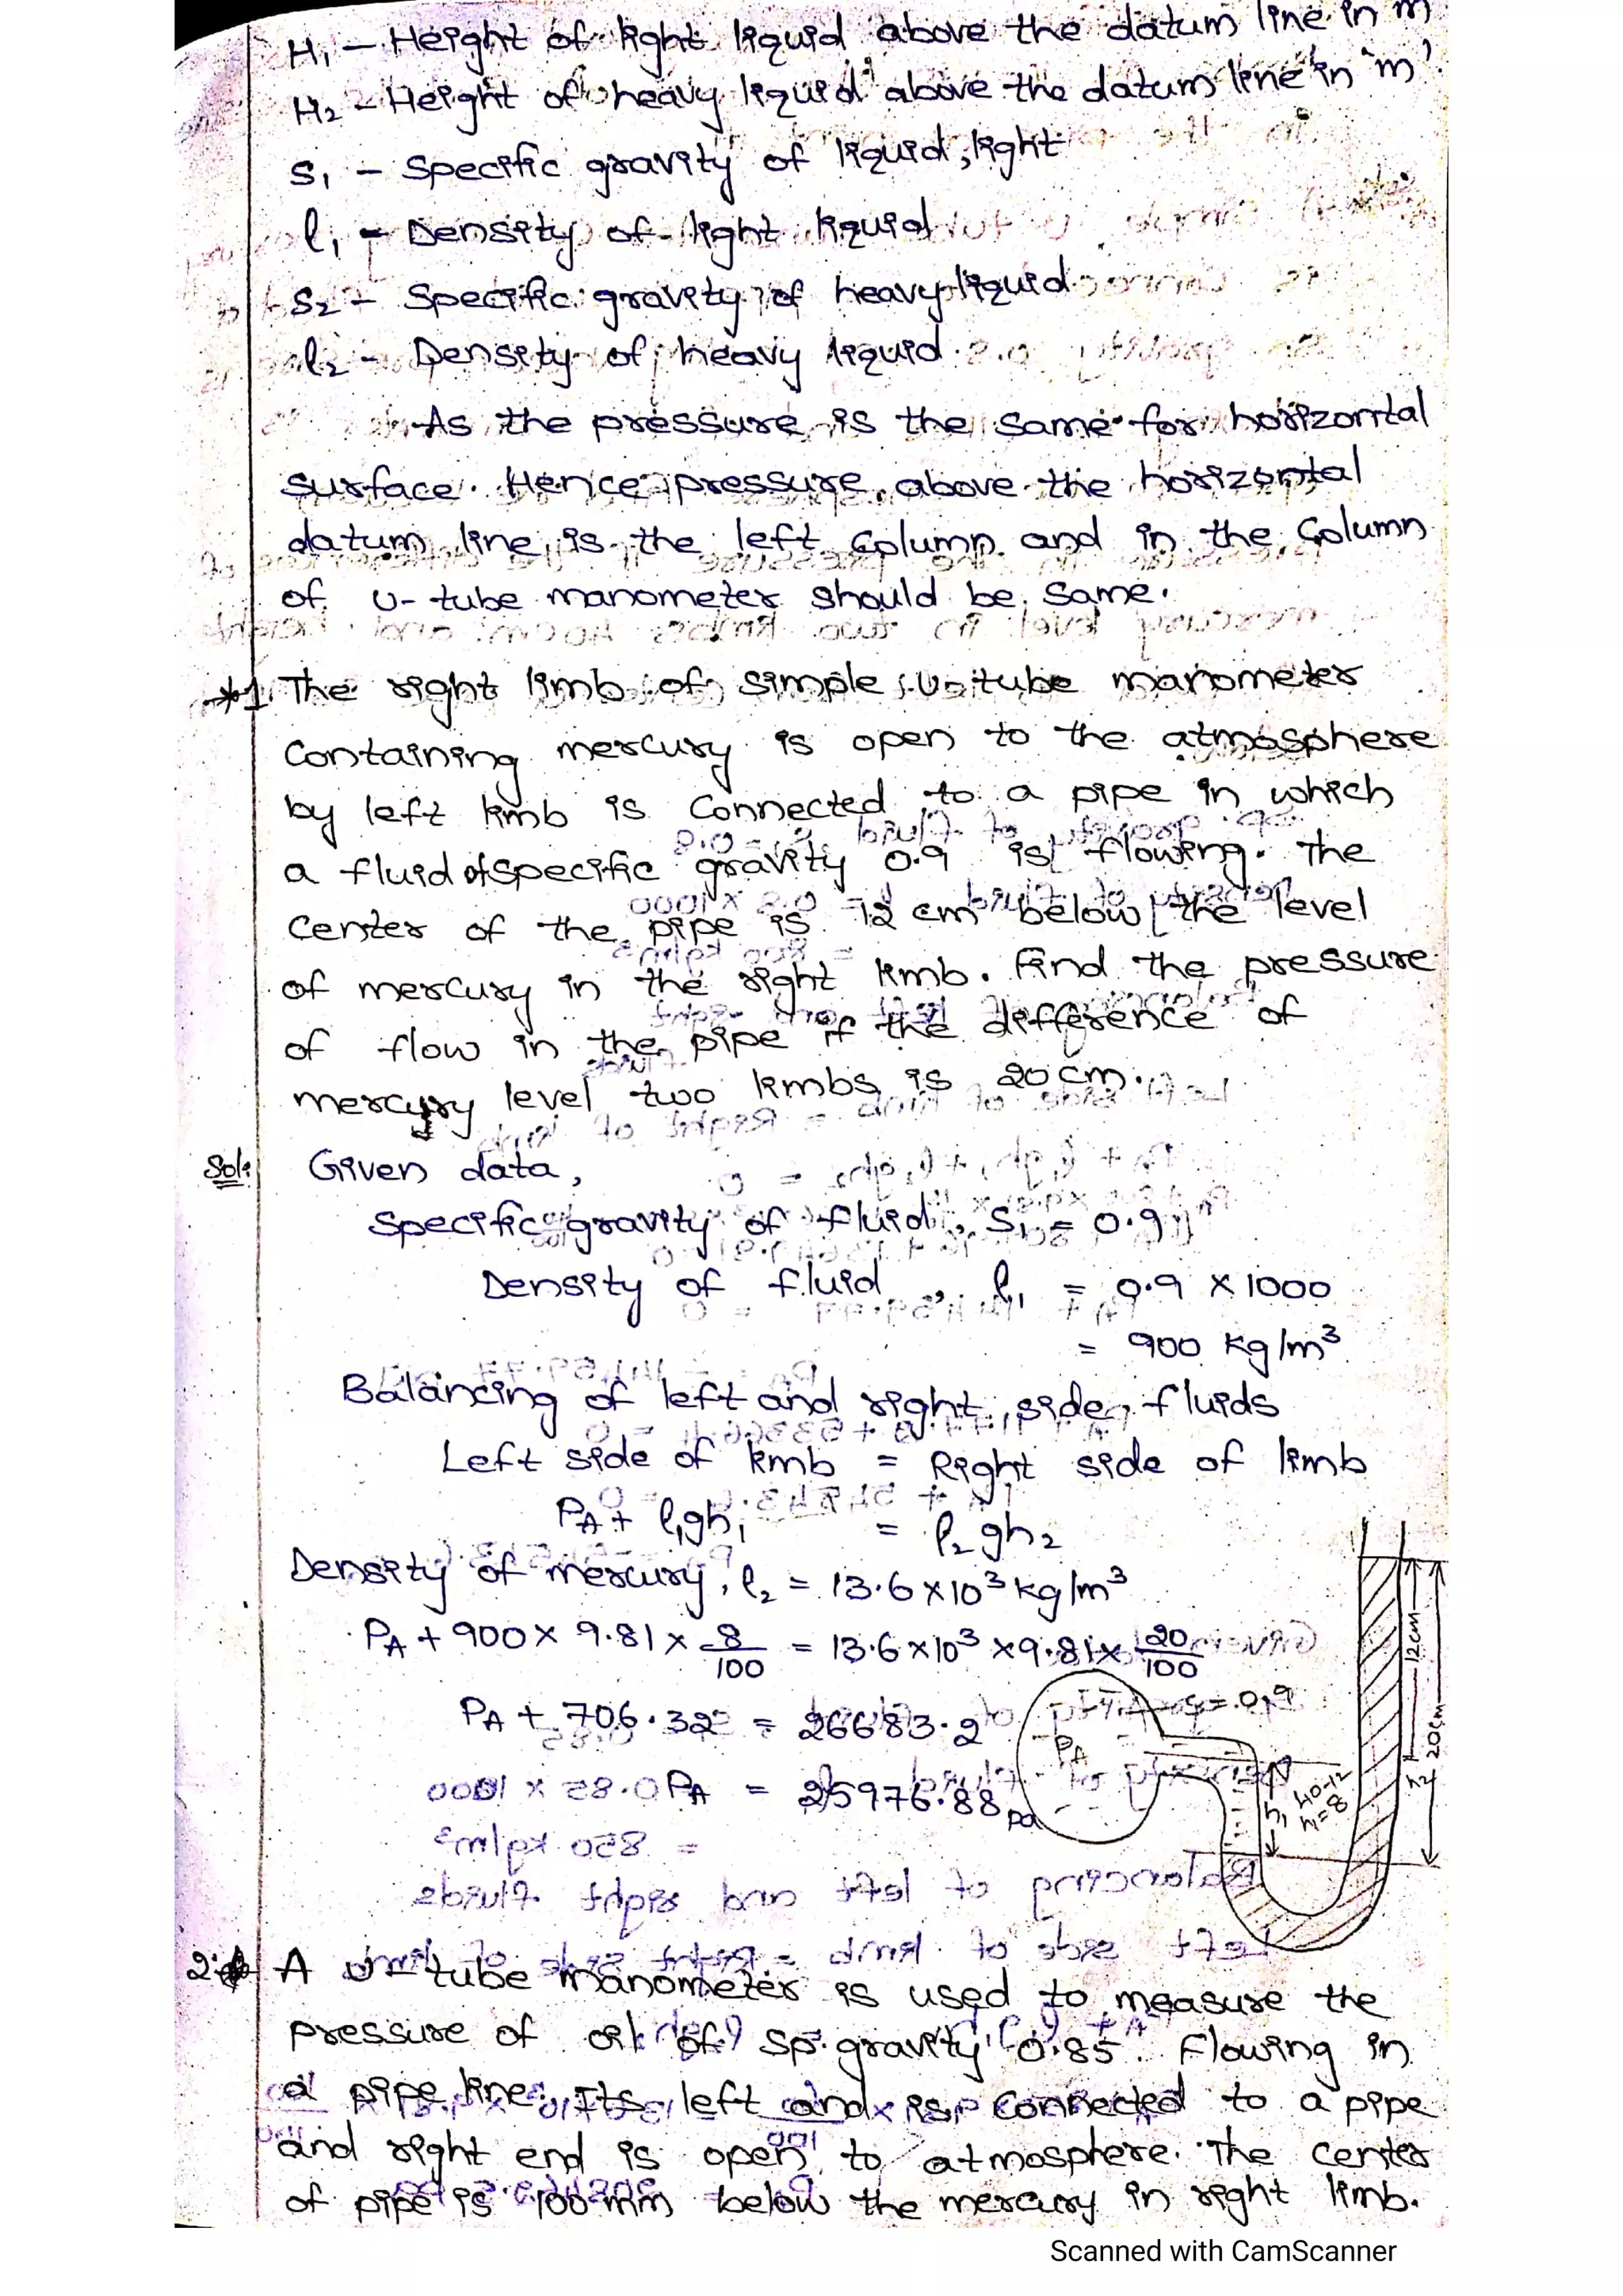 H₁ - Height of light liquid above the datum line in m
H₂ - Height of heavy liquid above the datum line in 'm'
S₁ - Specific gravity of liquid, light
ρ₁ - Density of light liquid
S₂ - Specific gravity of heavy liquid
ρ₂ - Density of heavy liquid.
As the pressure is the same for horizontal
surface. Hence pressure above the horizontal
datum line is the left column and in the column
of U-tube manometer should be same.
*1. The right limb of simple U-tube manometer
containing mercury is open to the atmosphere
by left limb is connected to a pipe in which
a fluid of specific gravity 0.9 is flowing. The
center of the pipe is 12 cm below the level
of mercury in the right limb. Find the pressure
of flow in the pipe if the difference of
mercury level two limbs is 20 cm.
Sol: Given data,
Specific gravity of fluid, S₁ = 0.9
Density of fluid, ρ₁ = 0.9 × 1000
= 900 kg/m³
Balancing of left and right side fluids
Left side of limb = Right side of limb
P_A + ρ₁gh₁ = ρ₂gh₂
Density of mercury, ρ₂ = 13.6 × 10³ kg/m³
P_A + 900 × 9.81 × 8/100 = 13.6 × 10³ × 9.81 × 20/100
P_A + 706.32 = 26683.2
P_A = 25976.88 pa
S = 0.9
P_A
12cm
20cm
h₂
h₁
40-12
h₁=8
2. A U-tube manometer is used to measure the
pressure of oil of sp. gravity 0.85 flowing in
a pipe line. Its left and is connected to a pipe
and right end is open to atmosphere. The center
of pipe is 100 mm below the mercury in right limb.
Scanned with CamScanner